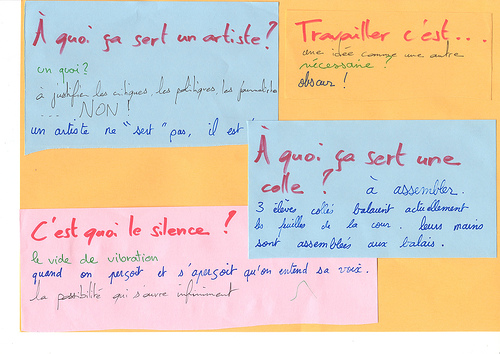 À quoi ça sert un artiste?
un quoi?
à justifier les critiques, les politiques, les journalistes
.... NON!
un artiste ne "sert" pas, il est
Travailler c'est...
une idée comme une autre
nécessaire!
obscur!
À quoi ça sert une
colle? à assembler.
3 élèves collés balaient actuellement
les feuilles de la cour. leurs mains
sont assemblées aux balais.
C'est quoi le silence?
le vide de vibration
quand on perçoit et s'aperçoit qu'on entend sa voix.
la possibilité qui s'ouvre infiniment